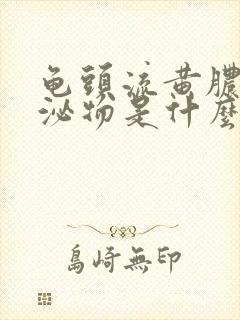 龟頭流黄膿
泌物是什麼
島崎無印